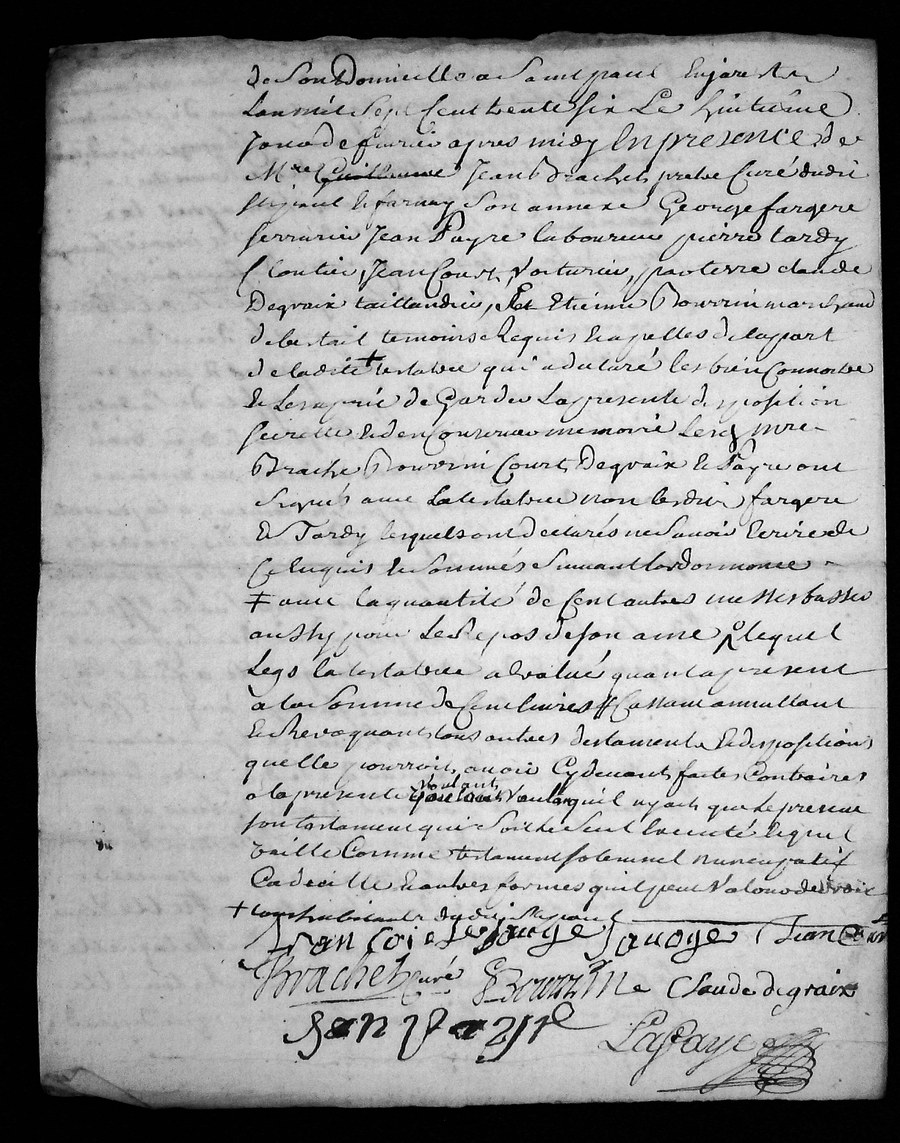 de Son Domicille a Saint paul Enjarest
Lan mil Sept Cent trente Six Le huitieme
Jour de feurier apres midy En presence de
Mre Guilleaume Jean Brachet pretre Curé dudit
St paul & farnay Son annexe George fargere
Serrurier Jean Payre laboureur pierre tardy
Cloutier, Jean Court Voiturier, par terre claude
Degraix taillandier, Et Etienne Bourrin marchand
temoins Requis & apellés de la part
de ladite + testatrice qui a declaré les bien Connoitre
& Les a prié de Garder La presente disposition
Secrette & den Conserver memoire lesq mre
Brachet Bourrin Court Degraix & Payre ont
Signés auec La testatrice non lesdits fargere
& Tardy lesquels ont declarés ne Sauoir Ecrire de
Ce Enquis & Sommés Suiuant Lordonnance
‡ auec la quantité de Cent autres messes basses
aussy pour Le Repos de Son ame lequel
Legs la testatrice a Evalué quant a present
a la Somme de Cent liures Cassant annullant
& Revoquant tous autres testaments & dispositions
quelle pourroit auoir Cy deuant faites Contraires
a la presente Voulant quil ny ait que Le present
Son testament qui Soit le Seul Executé lequel
Vaille Comme testament Solemnel nuncupatif
Codecille & autres formes quil peut Valoir de droit
+ dudit St paul
francoise Sauoge Jean Court
Brachet Curé Bourrin Claude degraix
Jan Payre
Lafaye